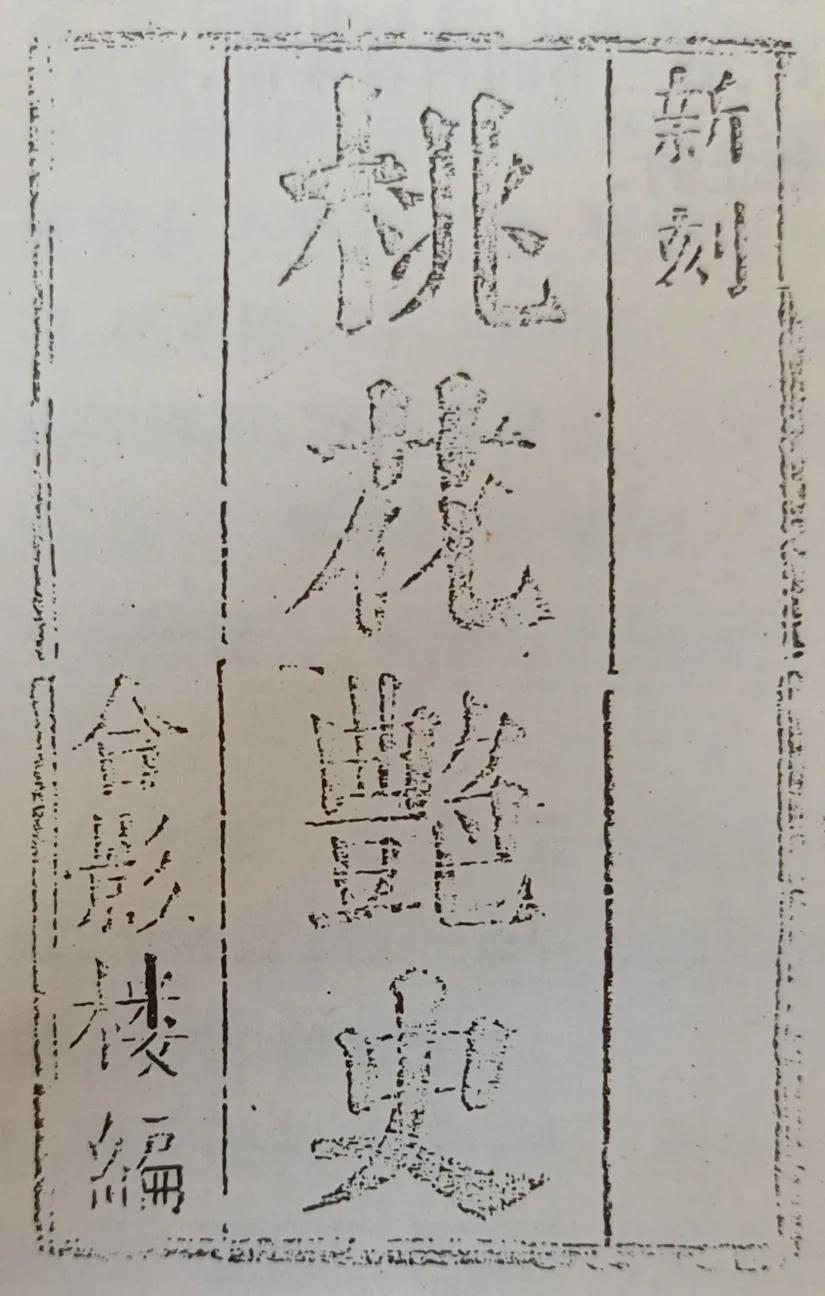 新刻
桃花艷史
合影樓編